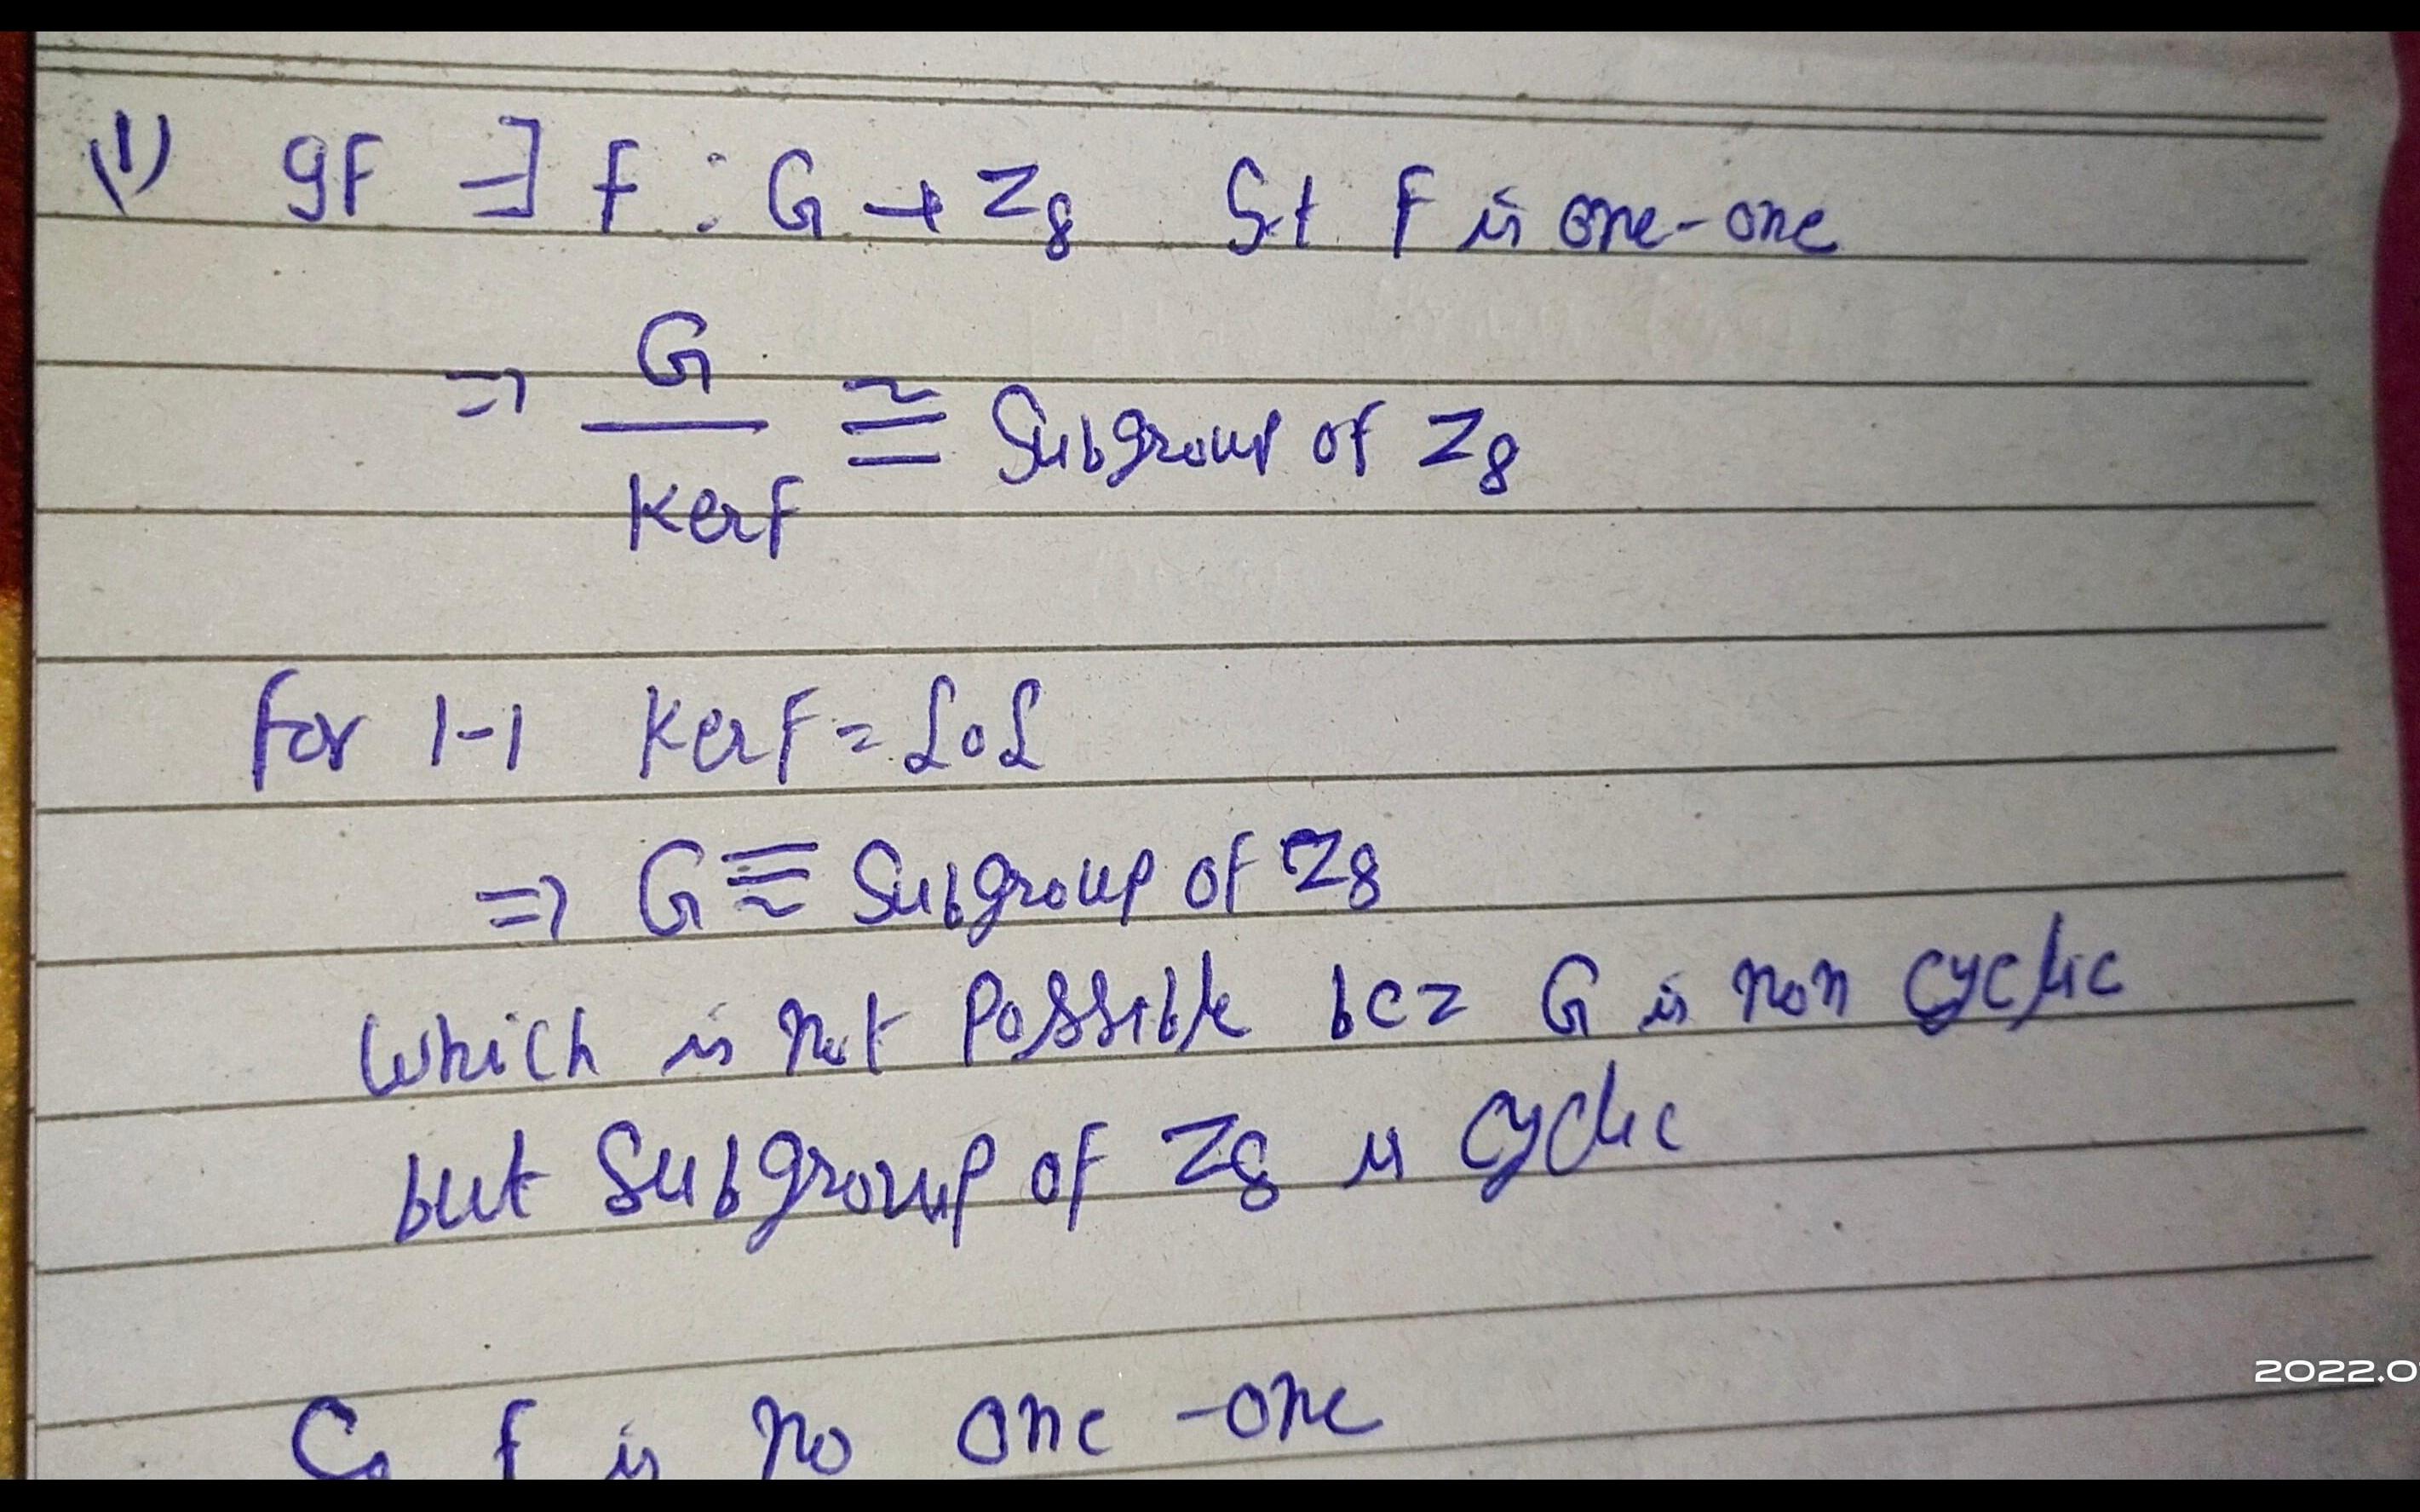 (1) If ∃ f : G → Z8 S.t f is one-one
⇒ G
Kerf ≅ Subgroup of Z8
for 1-1 Kerf = {0}
⇒ G ≅ Subgroup of Z8
Which is not Possible bcz G is non cyclic
but Subgroup of Z8 is cyclic
So f is no one-one
2022.0